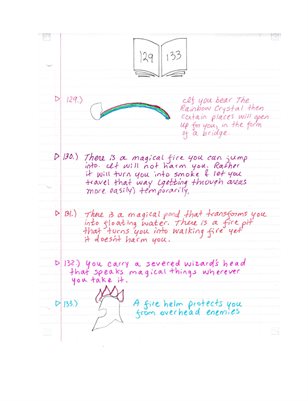 129 133
129.) If you bear The
Rainbow Crystal then
certain places will open
up for you, in the form
of a bridge.
130.) There is a magical fire you can jump
into. It will not harm you. Rather
it will turn you into smoke & let you
travel that way (getting through areas
more easily) temporarily.
131.) There is a magical pond that transforms you
into floating water. There is a fire pit
that turns you into walking fire yet
it doesn't harm you.
132.) You carry a severed wizard's head
that speaks magical things wherever
you take it.
133.) A fire helm protects you
from overhead enemies